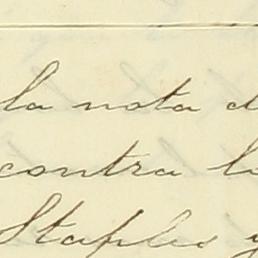 la nota d
contra l
Staples y